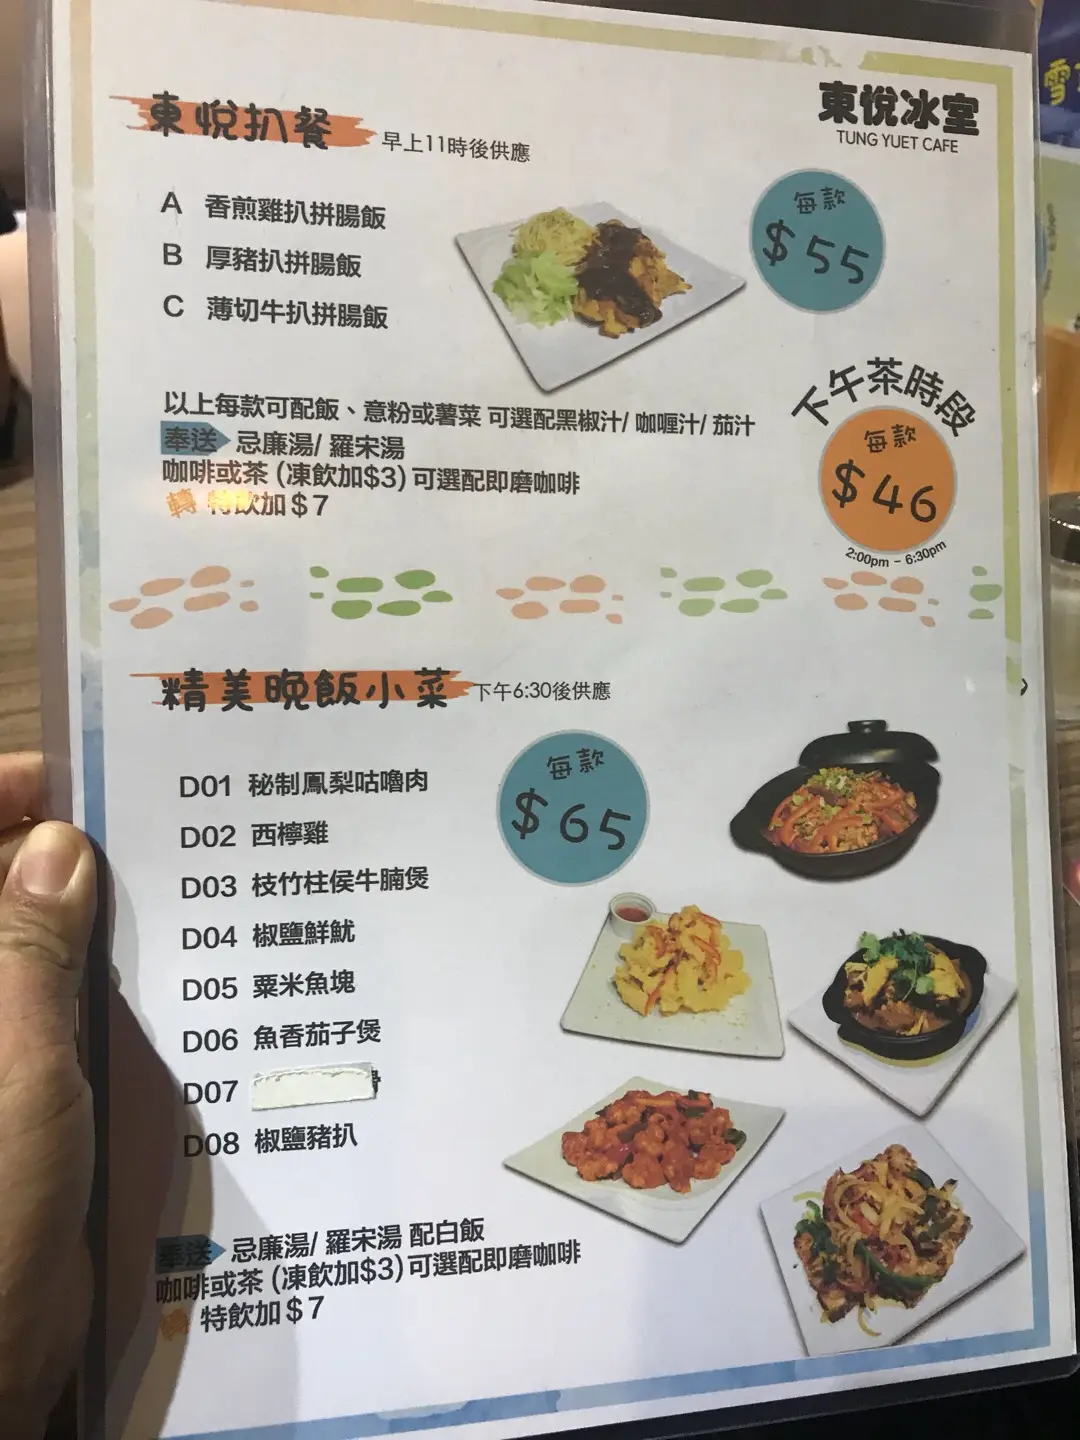 東悅冰室
TUNG YUET CAFE
東悅扒餐 早上11時後供應
A 香煎雞扒拼腸飯
B 厚豬扒拼腸飯
C 薄切牛扒拼腸飯
每款
$55
以上每款可配飯、意粉或薯菜 可選配黑椒汁/ 咖喱汁/ 茄汁
奉送 忌廉湯/ 羅宋湯
咖啡或茶 (凍飲加$3) 可選配即磨咖啡
轉 特飲加$7
下午茶時段
每款
$46
2:00pm - 6:30pm
精美晚飯小菜 下午6:30後供應
每款
$65
D01 秘制鳳梨咕嚕肉
D02 西檸雞
D03 枝竹柱侯牛腩煲
D04 椒鹽鮮魷
D05 粟米魚塊
D06 魚香茄子煲
D07
D08 椒鹽豬扒
奉送 忌廉湯/ 羅宋湯 配白飯
咖啡或茶 (凍飲加$3) 可選配即磨咖啡
轉 特飲加$7
雪